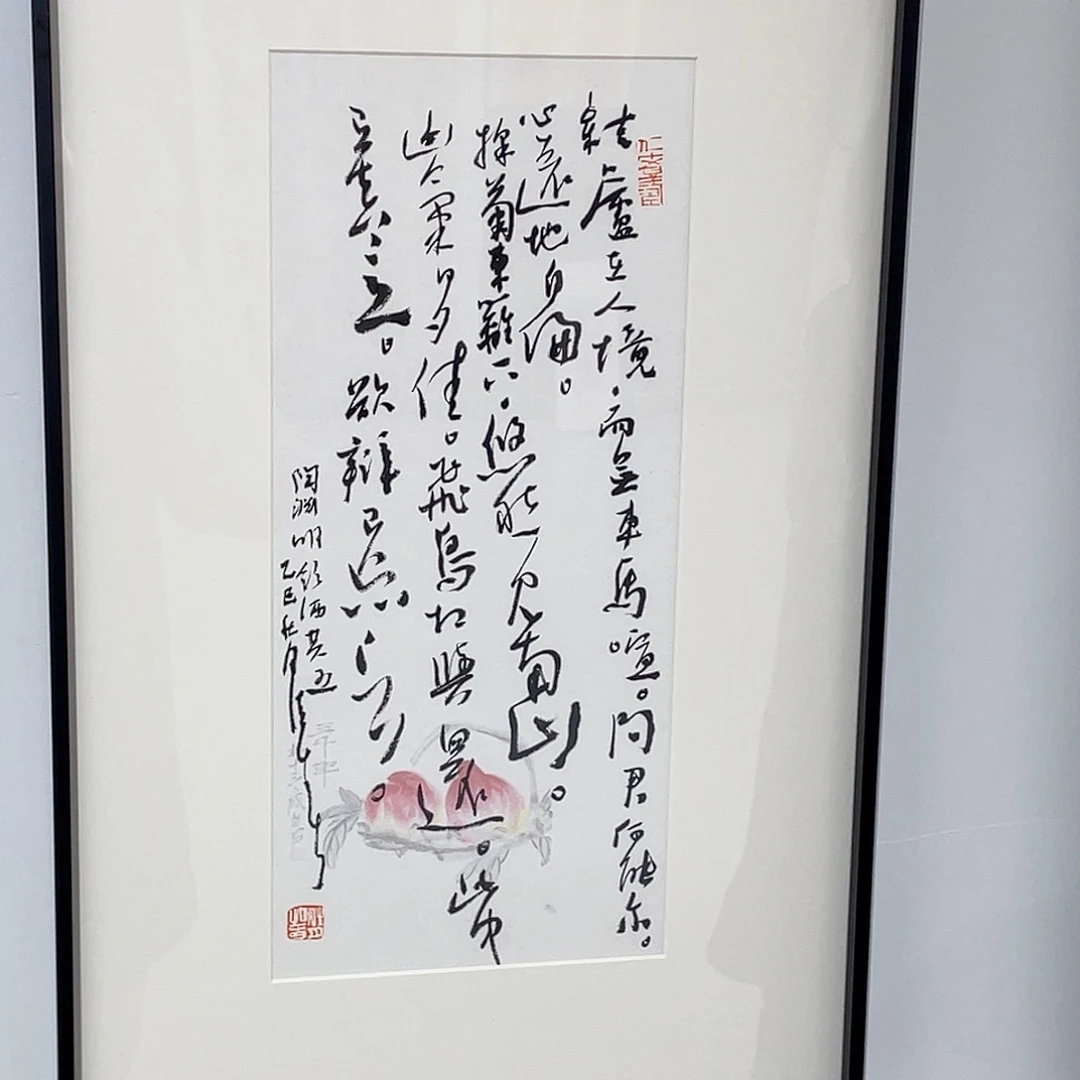 結廬在人境，而無車馬喧。問君何能爾。
心遠地自偏。
採菊東籬下。悠然見南山。
山氣日夕佳。飛鳥相與還。此中
有真意。欲辯已忘言。
陶淵明飲酒其五
乙巳秋月